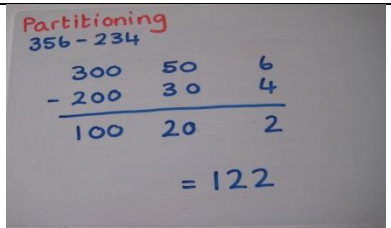 Partitioning
356 - 234
300 50 6
- 200 30 4
100 20 2
= 122